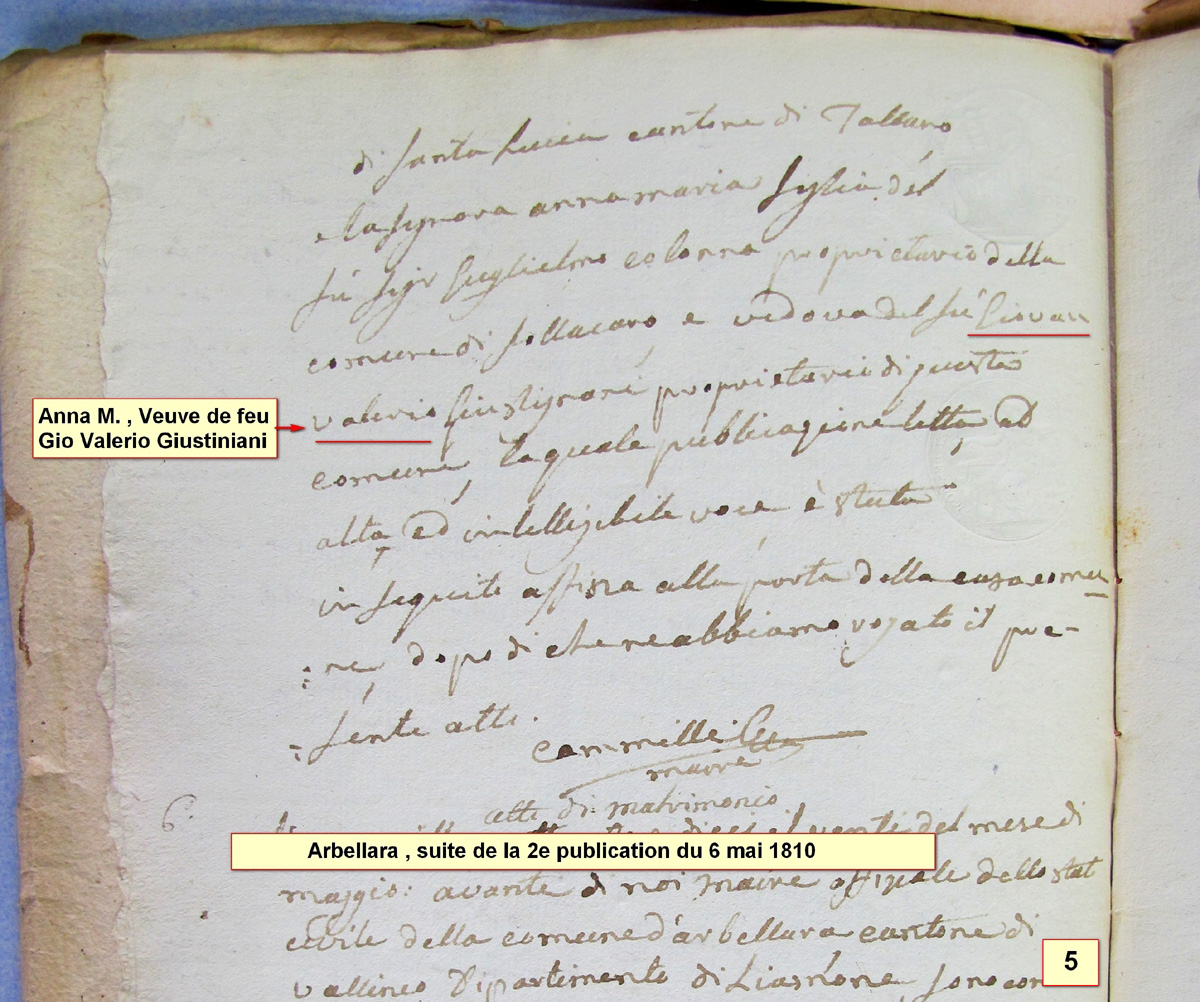 di Santa Lucia cantone di Tallano
e la signora anna maria figlia del
fù sigr guglielmo colonna proprietario della
comune di sollacaro e vedova del fù Giovan
Anna M. , Veuve de feu
Gio Valerio Giustiniani
valerio Giustignani proprietario di questa
comune, la quale publicazione letta, ad
alta, ed intelligibile voce è stata
in seguito affissa alla porta della casa comu
:ne, dopo di che ne abbiamo rogato il pre-
:sente atto.
maire
6.
atto di matrimonio
dieci el vente del mese di
Arbellara , suite de la 2e publication du 6 mai 1810
maggio: avante di noi maire offizale dello stat
civile della comune d'arbellara cantone di
vallinco Dipartimento di Liamone, sono com
5